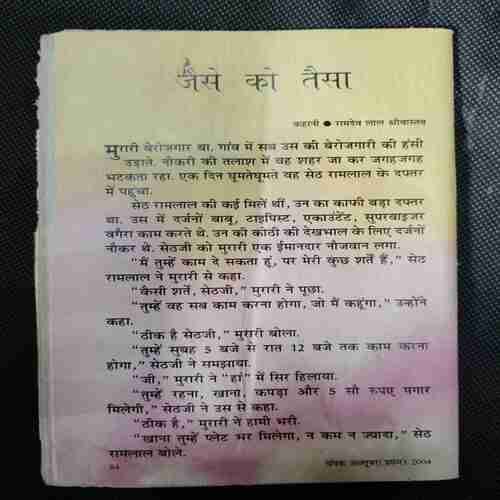 जैसे को तैसा
कहानी ● रामदेव लाल श्रीवास्तव
मुरारी बेरोजगार था. गांव में सब उस की बेरोजगारी की हंसी
उड़ाते. नौकरी की तलाश में वह शहर जा कर जगहजगह
भटकता रहा. एक दिन घूमतेघूमते वह सेठ रामलाल के दफ्तर
में पहुंचा.
सेठ रामलाल की कई मिलें थीं, उन का काफी बड़ा दफ्तर
था. उस में दर्जनों बाबू, टाइपिस्ट, एकाउंटेंट, सुपरवाइजर
वगैरा काम करते थे. उन की कोठी की देखभाल के लिए दर्जनों
नौकर थे. सेठजी को मुरारी एक ईमानदार नौजवान लगा.
“मैं तुम्हें काम दे सकता हूं, पर मेरी कुछ शर्तें हैं,” सेठ
रामलाल ने मुरारी से कहा.
“कैसी शर्तें, सेठजी,” मुरारी ने पूछा.
“तुम्हें वह सब काम करना होगा, जो मैं कहूंगा,” उन्होंने
कहा.
“ठीक है सेठजी,” मुरारी बोला.
“तुम्हें सुबह 5 बजे से रात 12 बजे तक काम करना
होगा,” सेठजी ने समझाया.
“जी,” मुरारी ने “हां” में सिर हिलाया.
“तुम्हें रहना, खाना, कपड़ा और 5 सौ रुपए पगार
मिलेगी,” सेठजी ने उस से कहा.
“ठीक है,” मुरारी ने हामी भरी.
“खाना तुम्हें प्लेट भर मिलेगा, न कम न ज्यादा,” सेठ
रामलाल बोले.
चंपक अक्तूबर (प्रथम), 2004